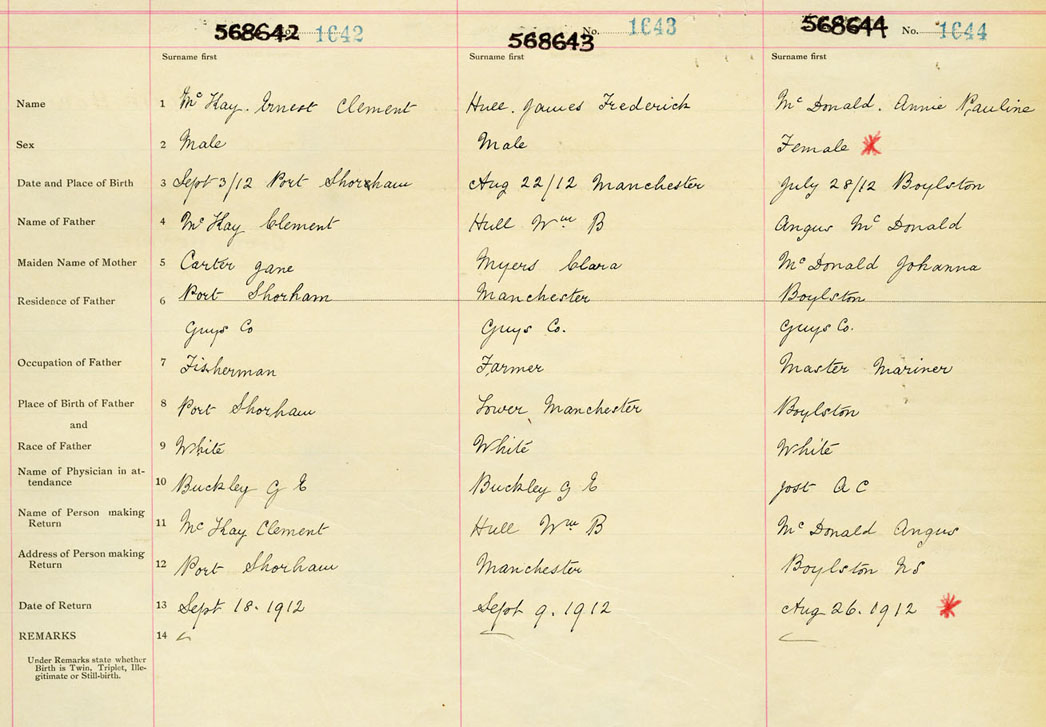 568642 No. 1642 568643 No. 1643 568644 No. 1644
Surname first Surname first Surname first
Name 1 Mc Kay. Ernest Clement Hull. James Frederick Mc Donald. Annie Pauline
Sex 2 Male Male Female
Date and Place of Birth 3 Sept 3/12 Port Shorham Aug 22/12 Manchester July 28/12 Boylston
Name of Father 4 Mc Kay Clement Hull Wm B Angus Mc Donald
Maiden Name of Mother 5 Carter Jane Myers Clara Mc Donald Johanna
Residence of Father 6 Port Shorham Manchester Boylston
Guys Co Guys Co. Guys Co.
Occupation of Father 7 Fisherman Farmer Master Mariner
Place of Birth of Father 8 Port Shorham Lower Manchester Boylston
and
Race of Father 9 White White White
Name of Physician in at-
tendance 10 Buckley G E Buckley G E Jost A C
Name of Person making
Return 11 Mc Kay Clement Hull Wm B Mc Donald Angus
Address of Person making
Return 12 Port Shorham Manchester Boylston NS
Date of Return 13 Sept 18. 1912 Sept 9. 1912 Aug 26. 1912
REMARKS 14
Under Remarks state whether
Birth is Twin, Triplet, Ille-
gitimate or Still-birth.